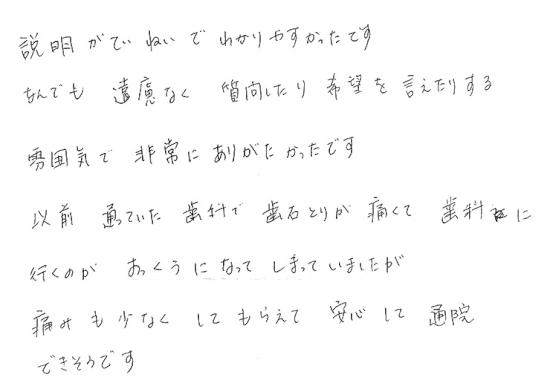 説明がていねいでわかりやすかったです
なんでも遠慮なく質問したり希望を言えたりする
雰囲気で非常にありがたかったです
以前通っていた歯科で歯石とりが痛くて歯科に
行くのがおっくうになってしまっていましたが
痛みも少なくしてもらえて安心して通院
できそうです